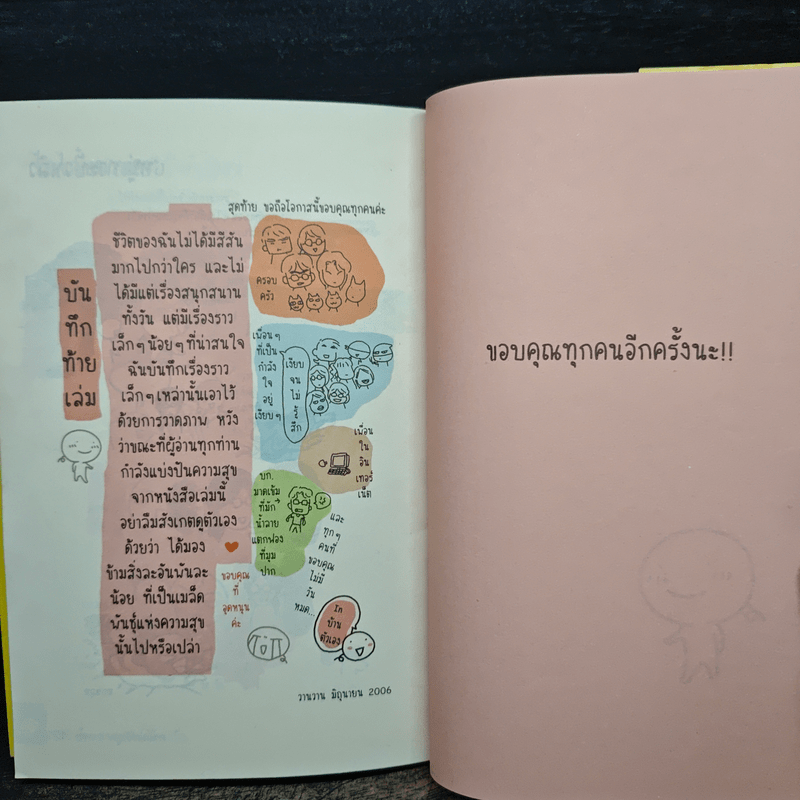 บัน
ทึก
ท้าย
เล่ม
สุดท้าย ขอถือโอกาสนี้ขอบคุณทุกคนค่ะ
ชีวิตของฉันไม่ได้มีสีสัน
มากไปกว่าใคร และไม่
ได้มีแต่เรื่องสนุกสนาน
ทั้งวัน แต่มีเรื่องราว
เล็กๆ น้อยๆ ที่น่าสนใจ
ฉันบันทึกเรื่องราว
เล็กๆ เหล่านั้นเอาไว้
ด้วยการวาดภาพ หวัง
ว่าขณะที่ผู้อ่านทุกท่าน
กำลังแบ่งปันความสุข
จากหนังสือเล่มนี้
อย่าลืมสังเกตดูตัวเอง
ด้วยว่า ได้มอง
ข้ามสิ่งละอันพันละ
น้อย ที่เป็นเมล็ด
พันธุ์แห่งความสุข
นั้นไปหรือเปล่า
ครอบ
ครัว
เพื่อนๆ
ที่เป็น
กำลัง
ใจ
อยู่
เงียบๆ
เงียบ
จน
ไม่
รู้
สึก
เพื่อน
ใน
อิน
เทอร์
เน็ต
บก.
มาดเข้ม
ที่มัก
น้ำลาย
แตกฟอง
ที่มุม
ปาก
และ
ทุกๆ
คนที่
ขอบคุณ
ไม่มี
วัน
หมด...
ขอบคุณ
ที่
อุดหนุน
ค่ะ
บ้าน
ตัวเอง
วานวาน มิถุนายน 2006
ขอบคุณทุกคนอีกครั้งนะ!!